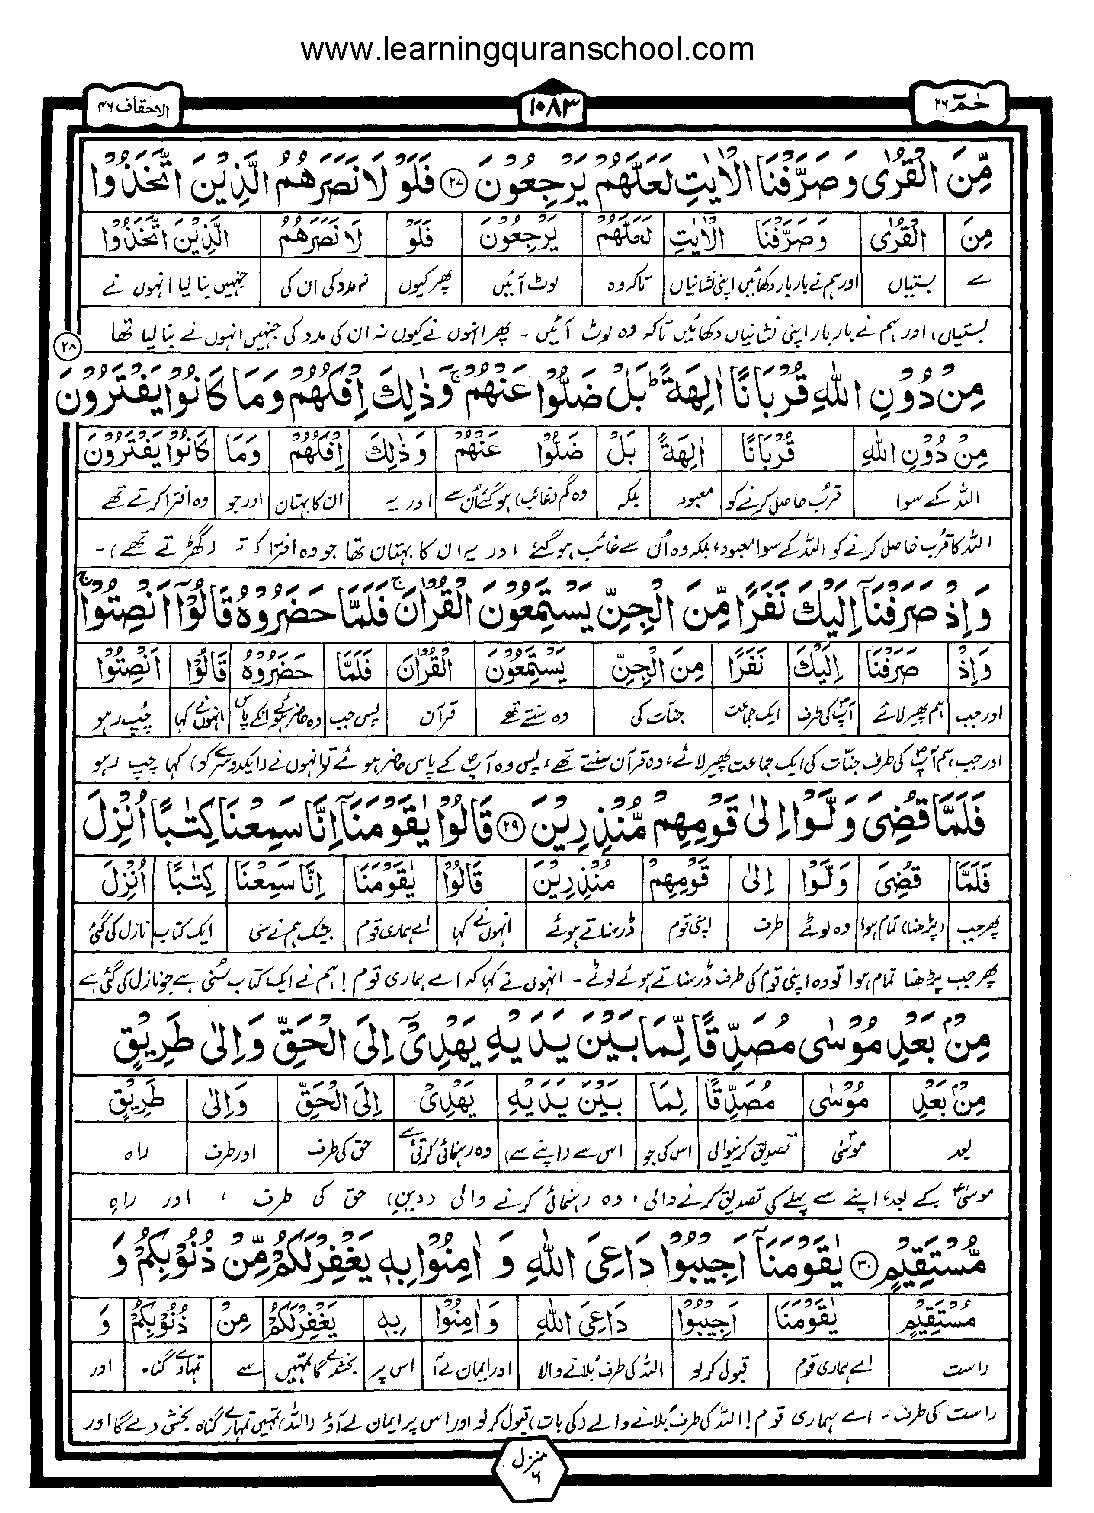 www.learningquranschool.com
حٰمٓ ۲۶
۱۰۸۳
الاحقاف ۴۶
مِّنَ الْقُرٰى وَصَرَّفْنَا الْاٰيٰتِ لَعَلَّهُمْ يَرْجِعُوْنَ ۲۷ فَلَوْلَا نَصَرَهُمُ الَّذِيْنَ اتَّخَذُوْا
مِنَ الْقُرٰى وَصَرَّفْنَا الْاٰيٰتِ لَعَلَّهُمْ يَرْجِعُوْنَ فَلَوْ لَا نَصَرَهُمُ الَّذِيْنَ اتَّخَذُوْا
سے بستیاں اور ہم نے بار بار دکھائیں اپنی نشانیاں تاکہ وہ لوٹ آئیں پھر کیوں نہ مدد کی ان کی جنہیں بنا لیا انہوں نے
بستیاں، اور ہم نے بار بار اپنی نشانیاں دکھائیں تاکہ وہ لوٹ آئیں ۔ پھر انہوں نے کیوں نہ ان کی مدد کی جنہیں انہوں نے بنا لیا تھا
۲۸
مِنْ دُوْنِ اللّٰهِ قُرْبَانًا اٰلِهَةً ؕ بَلْ ضَلُّوْا عَنْهُمْ ۚ وَذٰلِكَ اِفْكُهُمْ وَمَا كَانُوْا يَفْتَرُوْنَ
مِنْ دُوْنِ اللّٰهِ قُرْبَانًا اٰلِهَةً بَلْ ضَلُّوْا عَنْهُمْ وَذٰلِكَ اِفْكُهُمْ وَمَا كَانُوْا يَفْتَرُوْنَ
اللہ کے سوا قرب حاصل کرنے کو معبود بلکہ وہ گم (غائب) ہو گئے ان سے اور یہ ان کا بہتان اور جو وہ افترا کرتے تھے
اللہ کا قرب حاصل کرنے کو اللہ کے سوا معبود، بلکہ وہ اُن سے غائب ہو گئے اور یہ ان کا بہتان تھا جو وہ افترا کرتے (گھڑتے تھے)۔
وَاِذْ صَرَفْنَاۤ اِلَيْكَ نَفَرًا مِّنَ الْجِنِّ يَسْتَمِعُوْنَ الْقُرْاٰنَ ۚ فَلَمَّا حَضَرُوْهُ قَالُوْۤا اَنْصِتُوْا ۚ
وَاِذْ صَرَفْنَا اِلَيْكَ نَفَرًا مِنَ الْجِنِّ يَسْتَمِعُوْنَ الْقُرْاٰنَ فَلَمَّا حَضَرُوْهُ قَالُوْا اَنْصِتُوْا
اور جب ہم پھیر لائے آپ کی طرف ایک جماعت جنات کی وہ سنتے تھے قرآن پس جب وہ حاضر ہوئے انکے پاس انہوں نے کہا چپ رہو
اور جب ہم آپ کی طرف جنّات کی ایک جماعت پھیر لائے، وہ قرآن سنتے تھے، پس وہ آپ کے پاس حاضر ہوئے تو انہوں نے (ایک دوسرے کو) کہا چپ رہو
فَلَمَّا قُضِىَ وَلَّوْا اِلٰى قَوْمِهِمْ مُّنْذِرِيْنَ ۲۹ قَالُوْا يٰقَوْمَنَاۤ اِنَّا سَمِعْنَا كِتٰبًا اُنْزِلَ
فَلَمَّا قُضِىَ وَلَّوْا اِلٰى قَوْمِهِمْ مُنْذِرِيْنَ قَالُوْا يٰقَوْمَنَا اِنَّا سَمِعْنَا كِتٰبًا اُنْزِلَ
پھر جب (پڑھنا) تمام ہوا وہ لوٹے طرف اپنی قوم ڈر سناتے ہوئے انہوں نے کہا اے ہماری قوم بیشک ہم نے سنی ایک کتاب نازل کی گئی
پھر جب پڑھنا تمام ہوا تو وہ اپنی قوم کی طرف ڈر سناتے ہوئے لوٹے ۔ انہوں نے کہا کہ اے ہماری قوم! ہم نے ایک کتاب سُنی ہے جو نازل کی گئی ہے
مِنْۢ بَعْدِ مُوْسٰى مُصَدِّقًا لِّمَا بَيْنَ يَدَيْهِ يَهْدِىْۤ اِلَى الْحَقِّ وَاِلٰى طَرِيْقٍ
مِنْۢ بَعْدِ مُوْسٰى مُصَدِّقًا لِمَا بَيْنَ يَدَيْهِ يَهْدِىْ اِلَى الْحَقِّ وَاِلٰى طَرِيْقٍ
بعد موسیٰ تصدیق کرنیوالی اس کی جو اس سے (اپنے سے) وہ رہنمائی کرتی ہے حق کی طرف اور طرف راہ
موسیٰ کے بعد، اپنے سے پہلے کی تصدیق کرنے والی، وہ رہنمائی کرنے والی (دین) حق کی طرف ، اور راہِ
مُّسْتَقِيْمٍ ۳۰ يٰقَوْمَنَاۤ اَجِيْبُوْا دَاعِىَ اللّٰهِ وَ اٰمِنُوْا بِهٖ يَغْفِرْلَكُمْ مِّنْ ذُنُوْبِكُمْ وَ
مُسْتَقِيْمٍ يٰقَوْمَنَا اَجِيْبُوْا دَاعِىَ اللّٰهِ وَاٰمِنُوْا بِهٖ يَغْفِرْلَكُمْ مِنْ ذُنُوْبِكُمْ وَ
راست اے ہماری قوم قبول کر لو اللہ کی طرف بلانے والا اور ایمان لے آ اس پر بخشدے گا تمہیں سے تمہارے گناہ اور
راست کی طرف ۔ اے ہماری قوم! اللہ کی طرف بُلانے والے (کی بات) قبول کر لو اور اس پر ایمان لے آؤ (اللہ) تمہیں تمہارے گناہ بخش دے گا اور
منزل ۶